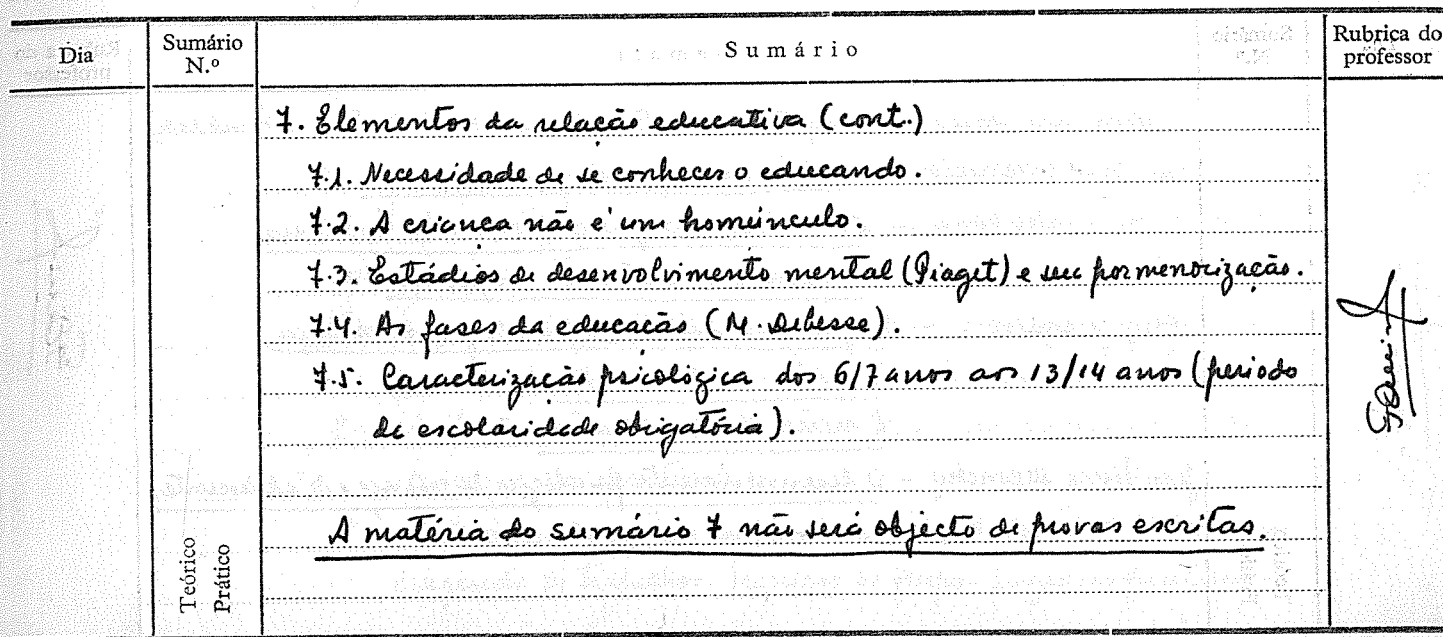 Dia
Sumário N.º
Sumário
Rubrica do professor
7. Elementos da relação educativa (cont.)
7.1. Necessidade de se conhecer o educando.
7.2. A criança não é um homúnculo.
7.3. Estádios de desenvolvimento mental (Piaget) e sua pormenorização.
7.4. As fases da educação (M. Debesse).
7.5. Caracterização psicológica dos 6/7 anos aos 13/14 anos (período
de escolaridade obrigatória).
A matéria do sumário 7 não será objecto de provas escritas.
Teórico
Prático